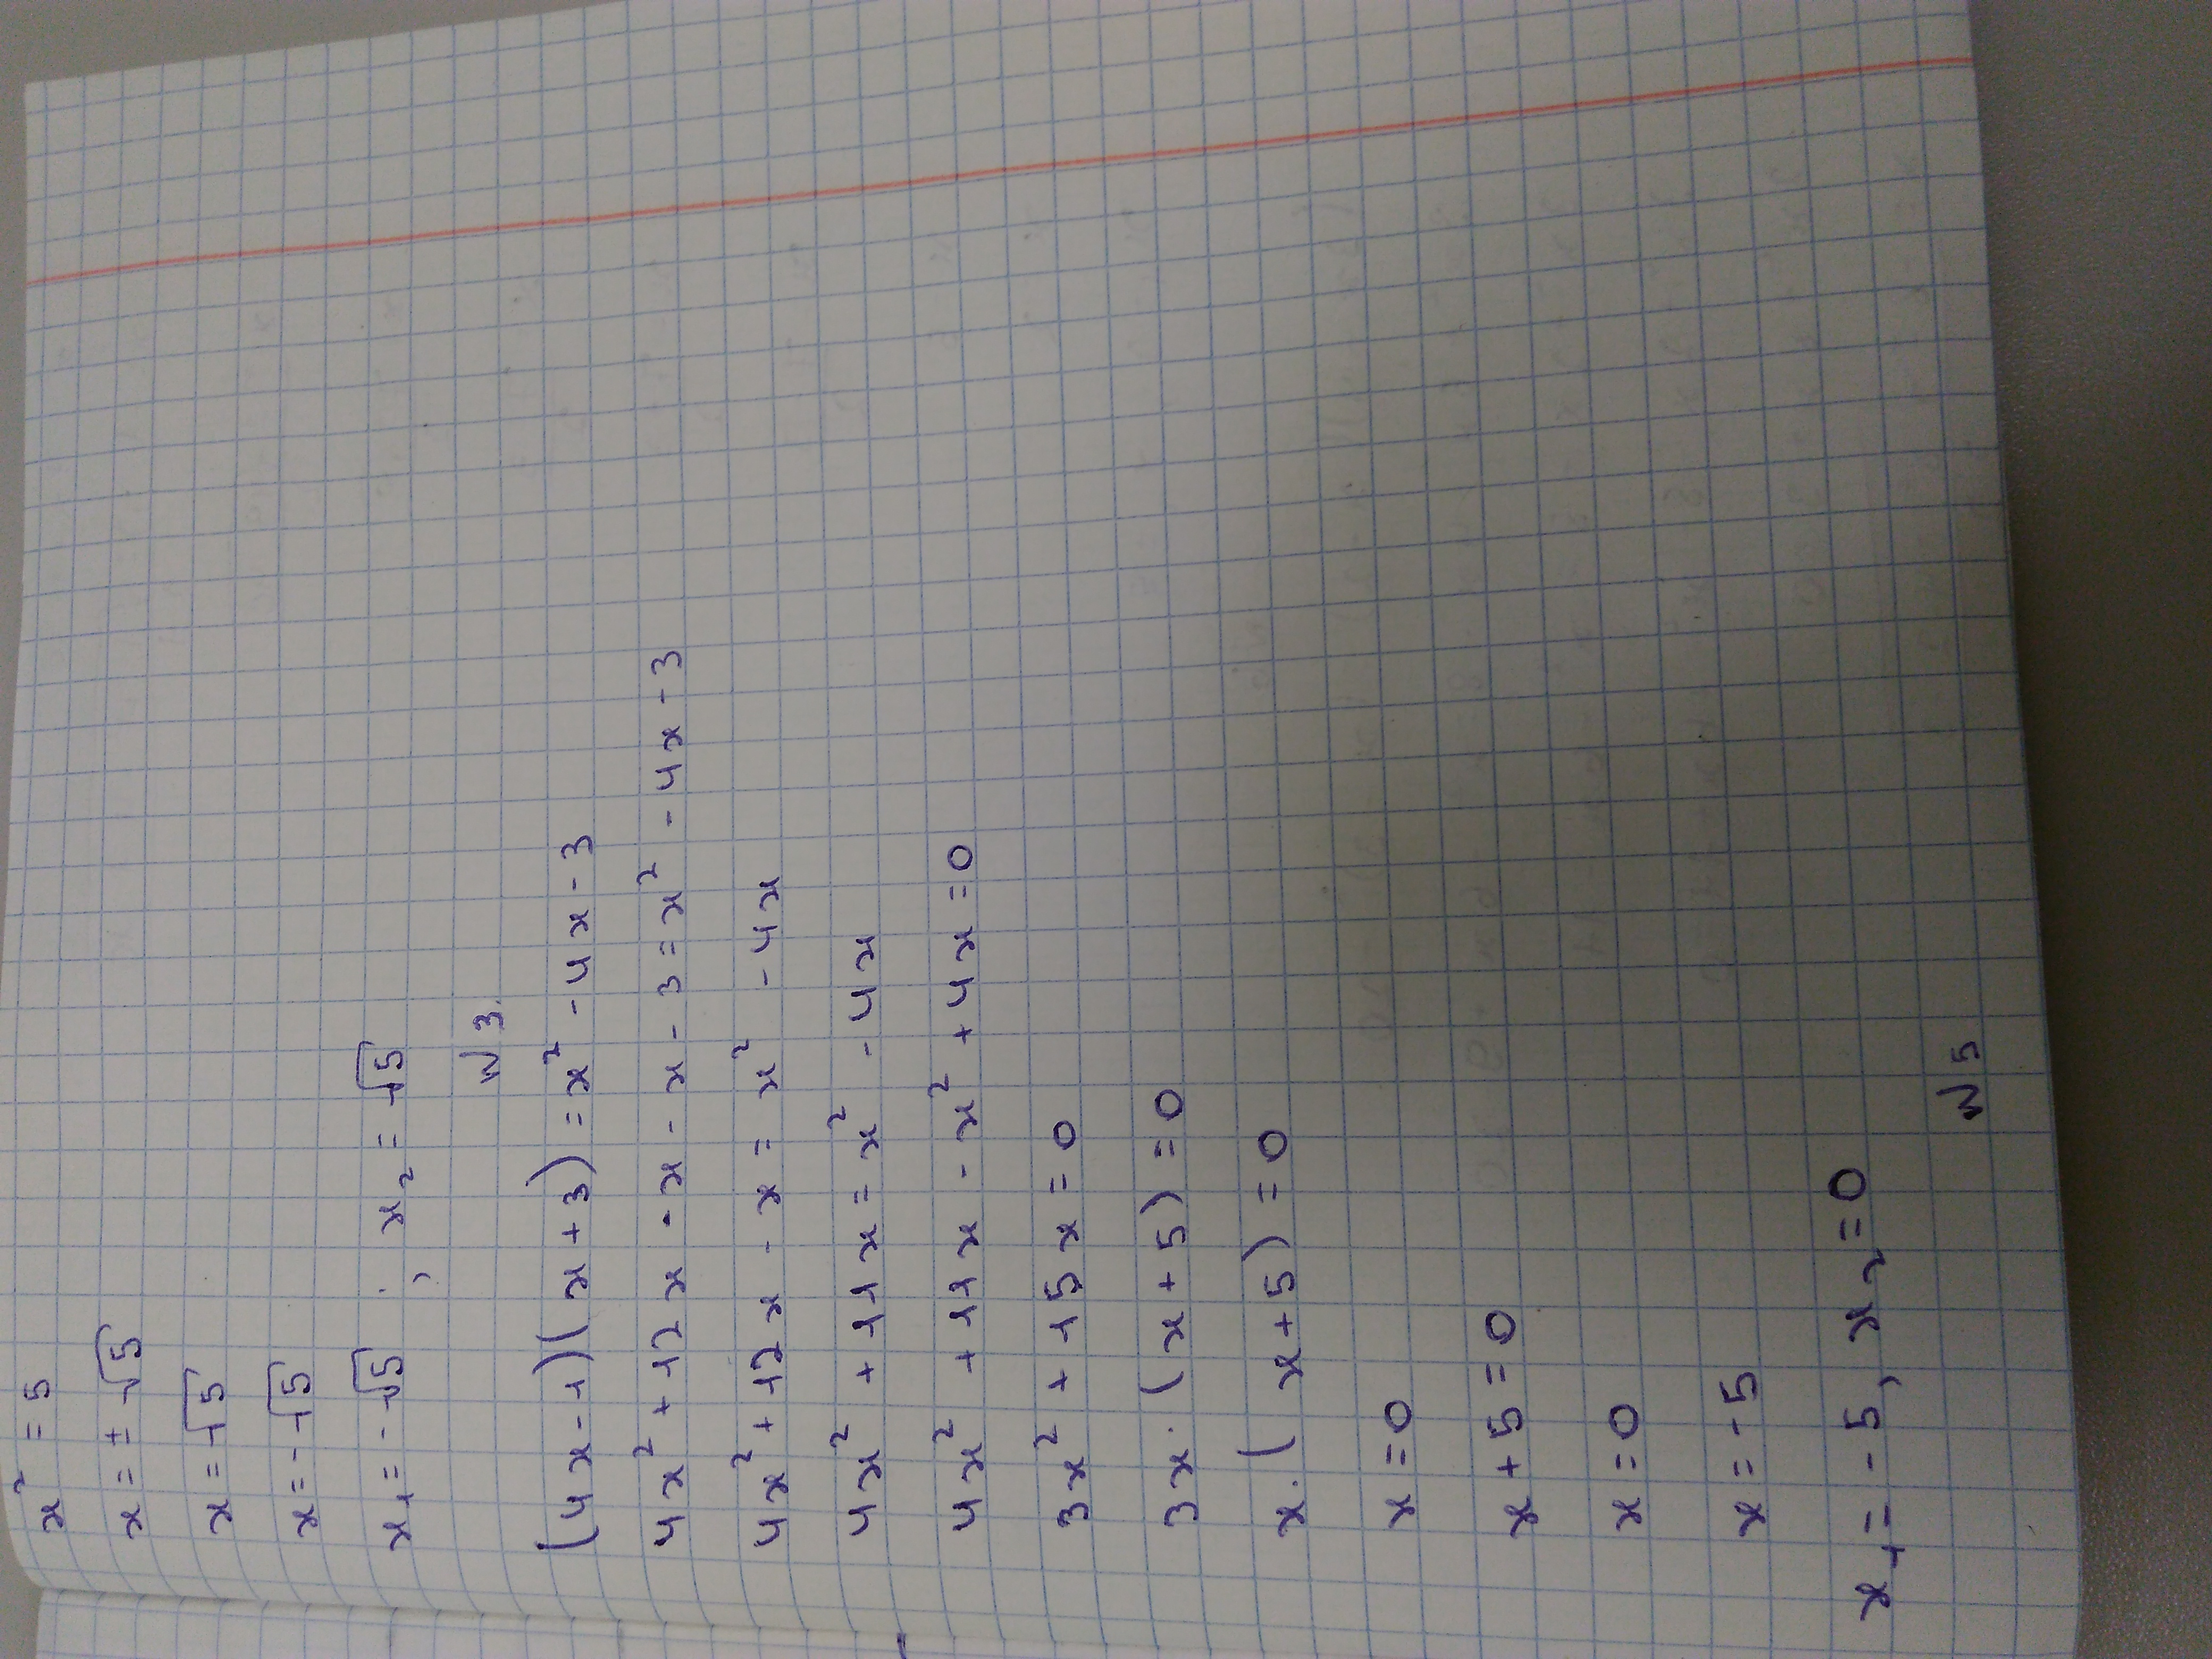 x² = 5
x = ± √5
x = √5
x = - √5
x₁ = - √5 , x₂ = √5
N 3.
(4x-1)(x+3) = x² - 4x - 3
4x² + 12x - x - x - 3 = x² - 4x - 3
4x² + 12x - x = x² - 4x
4x² + 11x = x² - 4x
4x² + 11x - x² + 4x = 0
3x² + 15x = 0
3x · (x+5) = 0
x · (x+5) = 0
x = 0
x + 5 = 0
x = 0
x = -5
x₁ = -5, x₂ = 0
N 5